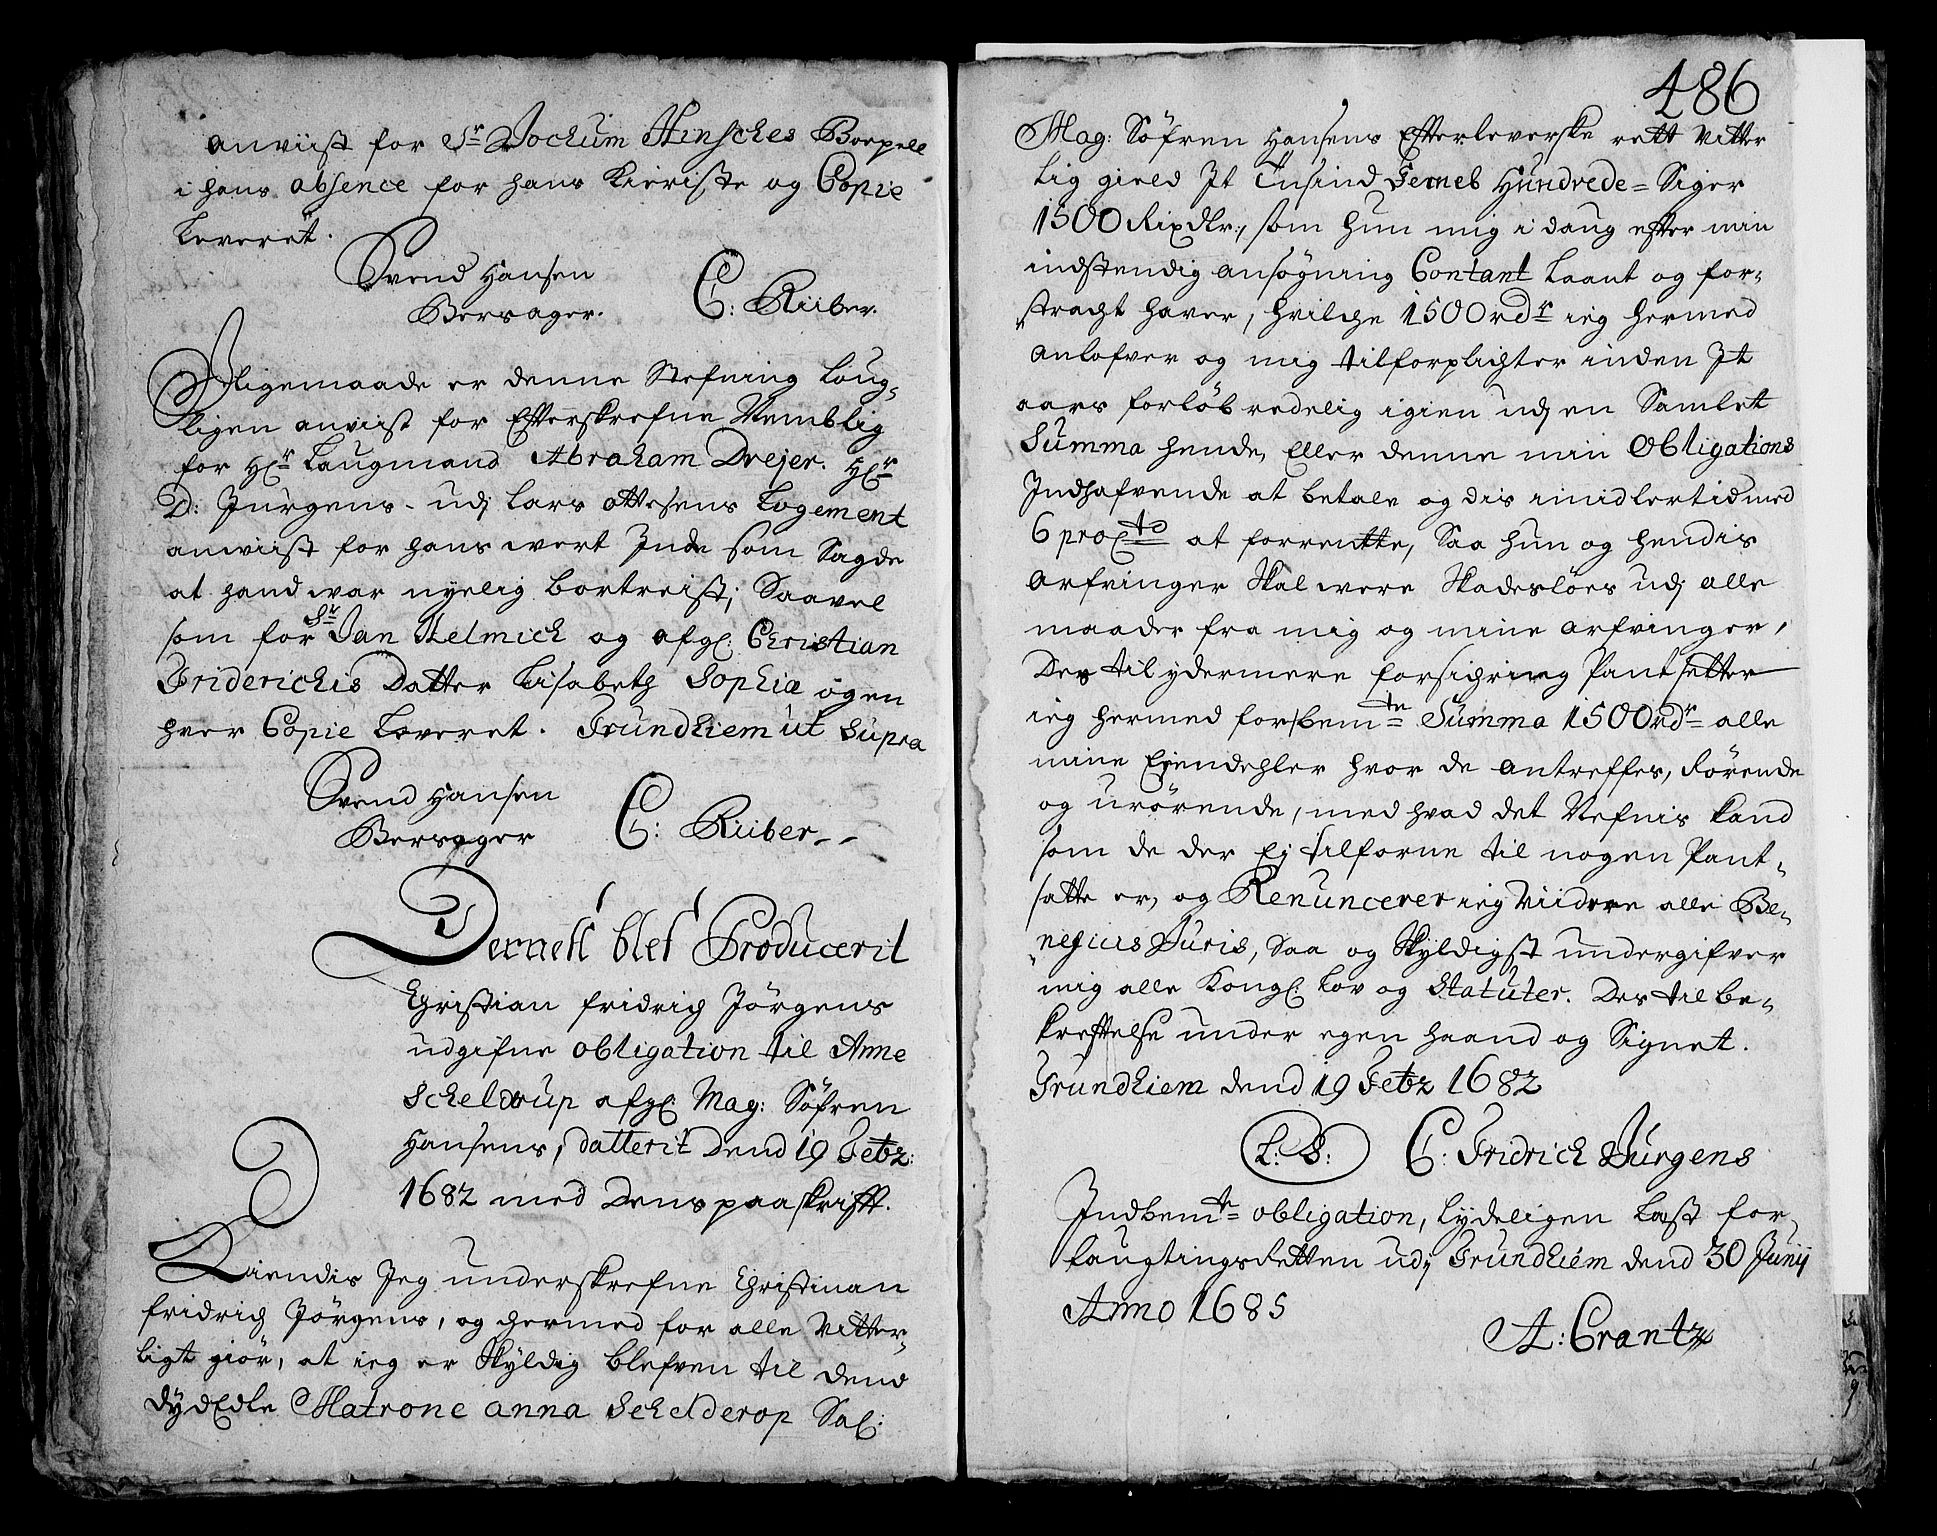 anviist for Sr Jochum Hinsches Boepell
i hans absence for hans Kieriste og Copie
Leveret.
Svend Hansen
Borsager.
C: Riiber.
Iligemaade er denne Stefning Loug-
ligen anviist for Efterskrefne Nemblig
for Hr: Laugmand Abraham Drejer. Hr:
D: Jürgens - udj Lars Ottesens Logement
anviist for hans wert Inde som Sagde
at hand war nyelig bortreist; Saavel
som for Sr Jan Helmich og afgl: Christian
Friderichis Datter Lisabeth Sophia og en
hver Copie Leveret. Trundhiem ut Supra
Svend Hansen
Borsager
C: Riiber--
Dernest blef Producerit
Christian fridrich Jörgens
udgifne obligation til Anne
Scheldrup afgl: Mag: Söfren
Hansens, datterit Dend 19 Febr:
1682 med Dens paaskrifft.
Kiendis Jeg underskrefne Christian
fridrich Jörgens, og hermed for alle Vitter-
ligt giör, at ieg er Skyldig blefven til dend
dydEdle Matrone anna Schelderop Sal:
486
Mag: Söfren Hansens Efterleverske rett Vitter
lig gield It Tusind Femb Hundrede = Siger
1500 Rixdlr:, som hun mig i daug efter min
indstendig ansögning Contant Laant og for-
stracht haver, hvilche 1500 rdr ieg hermed
anlofver og mig tilforplichter inden It
aars forlöb redelig igien udj en Samlet
Summa hende, Eller denne min Obligations
Indhafvende at betale og dis imidlertid med
6 proCto at forrentte, Saa hun og hendis
arfvinger Skal were Skadeslöes udj alle
maader fra mig og mine arfvinger,
Des til ydermere forsichring Pantsetter
ieg hermed forskembte Summa 1500 rdr alle
mine Eijendehler hvor de antreffes, Rörende
og urörende, med hvad det Nefnis kand
som de der Ej tilforne til nogen Pant-
satte er, og Renuncerer ieg Viidere alle Be-
neficiis Juris, Saa og Skyldigst undergifver
mig alle Kongl: Lov og Statuter. Des til be-
kreftelse under egen haand og Signet.
Trundhiem dend 19 Febr 1682
L: S:
C: Fridrich Jürgens
Indbemte obligation, Lydeligen Læst for
Laugtings Retten udj Trundhiem dend 30 Junij
Anno 1685
A: Crantz